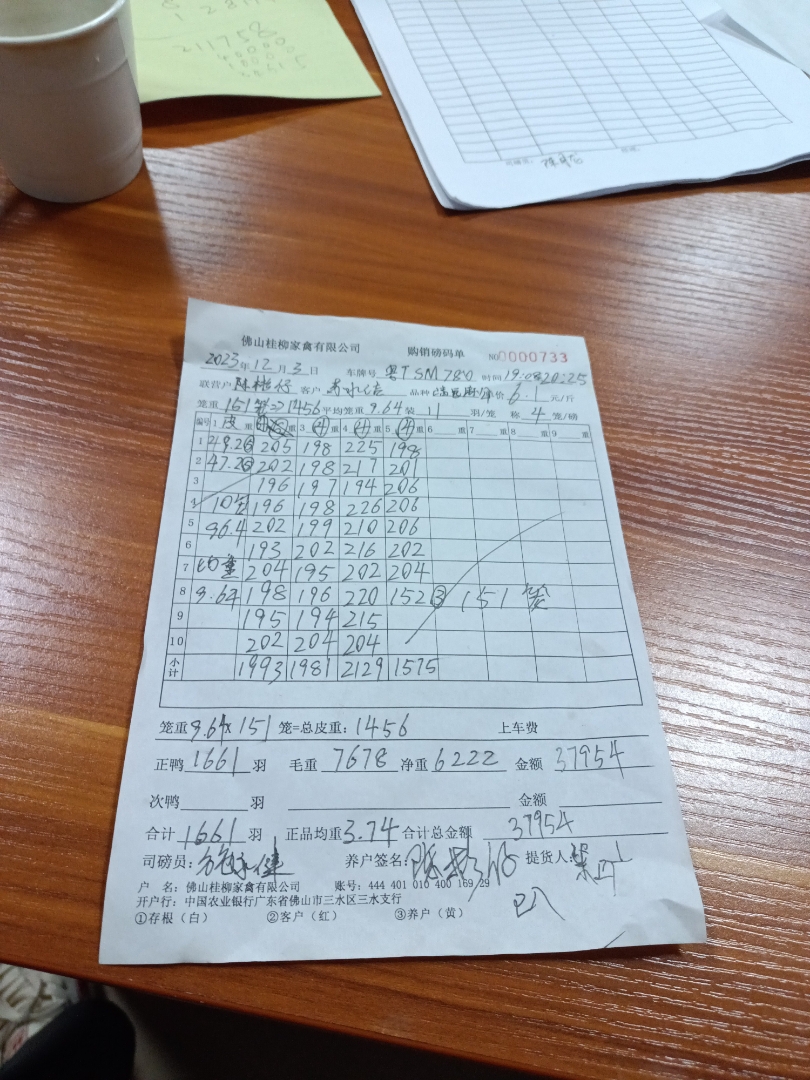 211758
佛山桂柳家禽有限公司 购销磅码单 NO0000733
2023年12月3日 车牌号 粤TSM780 时间19:08 20:25
联营户 客户 品种 价6.1元/斤
笼重 151笼=>1456 平均笼重9.64装11羽/笼 称4笼/磅
编号 1皮重 重 3④重 4④重 5④重 6重 7重 8重 9重
1 49.2⑤ 205 198 225 198
2 47.2⑤ 202 198 217 201
3 196 197 194 206
4 10笼 196 198 226 206
5 96.4 202 199 210 206
6 193 202 216 202
7 均重 204 195 202 204
8 9.64 198 196 220 152③ 151笼
9 195 194 215
10 202 204 204
小计 1993 1981 2129 1575
笼重9.64x151笼=总皮重:1456 上车费
正鸭1661羽 毛重7678净重6222 金额37954
次鸭 羽 金额
合计1661羽 正品均重3.74合计总金额37954
司磅员: 养户签名: 提货人:
户 名:佛山桂柳家禽有限公司 账号:444 401 010 400 169 29
开户行:中国农业银行广东省佛山市三水区三水支行
①存根(白) ②客户(红) ③养户(黄)